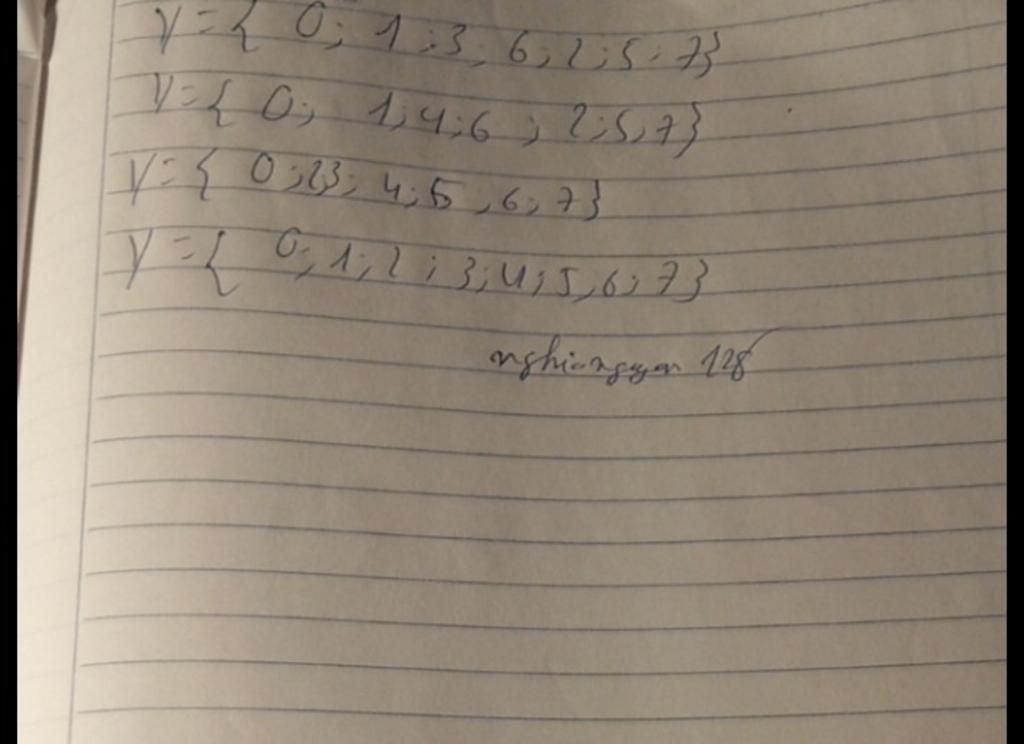 Y={ 0; 1; 3; 6; 2; 5; 7}
Y={ 0; 1; 4; 6 ; 2; 5, 7}
Y={ 0; 2 3; 4; 5, 6; 7}
Y={ 0; 1; 2; 3; 4; 5, 6; 7}
nghianguyen 128